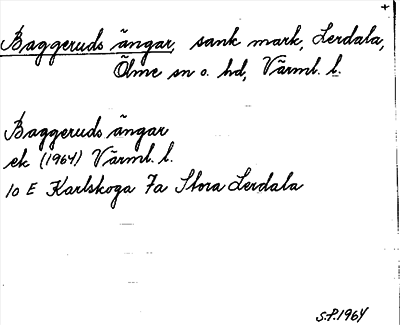 +
Baggeruds ängar, sank mark, Lerdala,
Ölme sn o. hd, Värml. l.
Baggeruds ängar
ek (1964) Värml. l.
10 E Karlskoga 7a Stora Lerdala
S.P. 1964